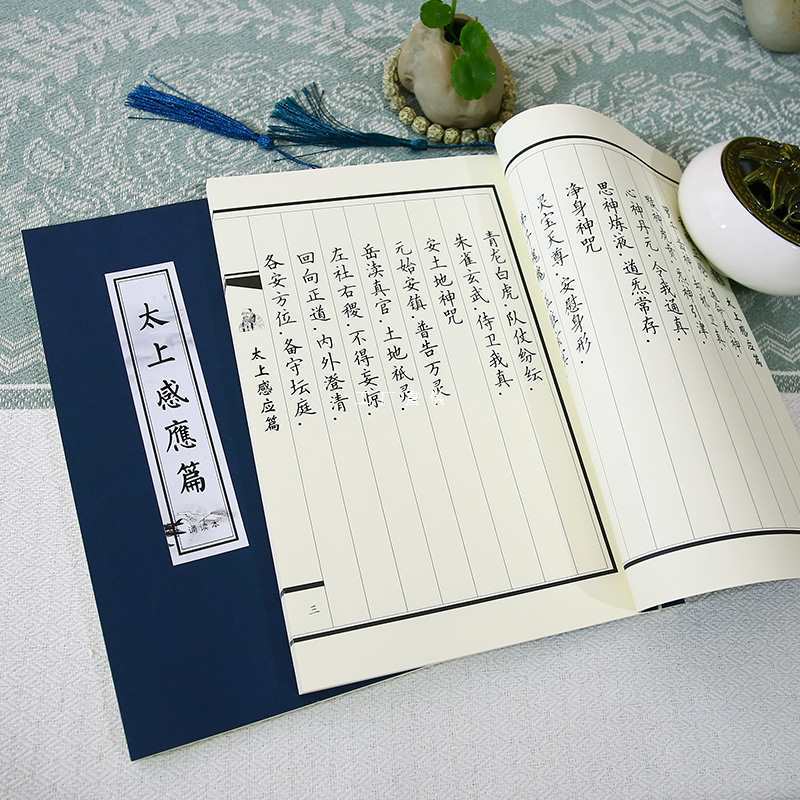 太上感应篇
心神丹元·令我通真·
思神炼液·道炁常存·
净身神咒
灵宝天尊·安慰身形·
青龙白虎·队仗纷纭·
朱雀玄武·侍卫我真·
安土地神咒
元始安镇·普告万灵·
岳渎真官·土地祇灵·
左社右稷·不得妄惊·
回向正道·内外澄清·
各安方位·备守坛庭·
太上感应篇
三
太上感應篇
诵读本